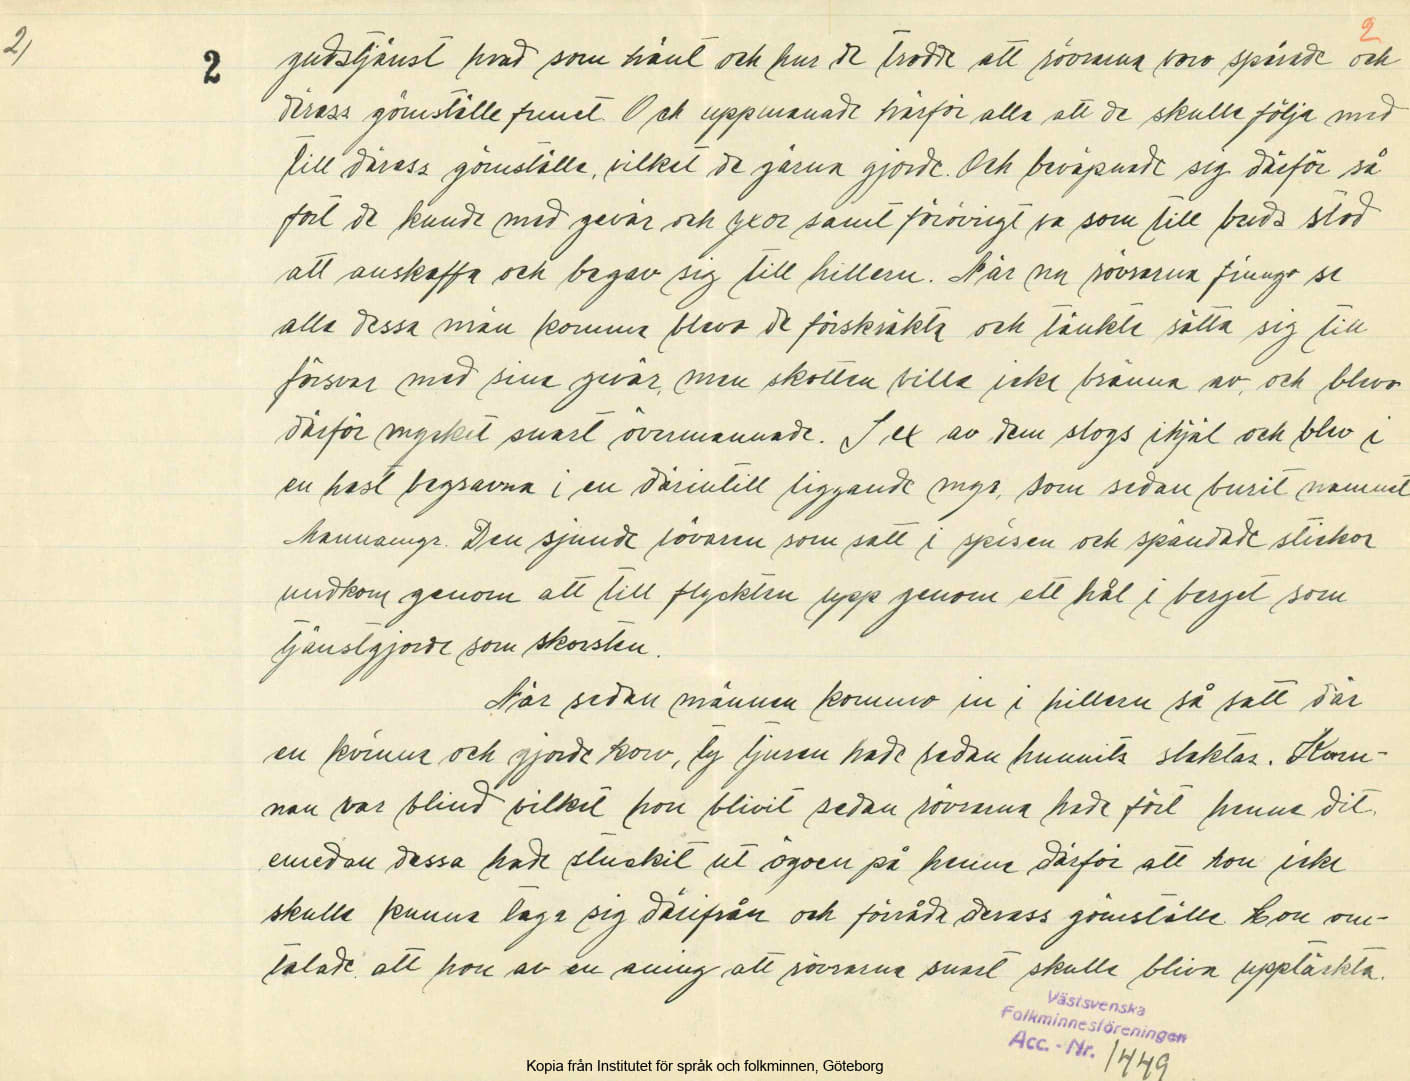 2)
2
2
gudstjänst hvad som hänt och hur de trodde att rövrarna voro spårade och
dérass gömställe funet. Och uppmanade härför alla att de skulle följa med
till därass gömställe, vilket de gärna gjorde. Och beväpnade sig därför så
fort de kunde med gevär och yxor samt förövrigt va som till buds stod
att anskaffa och begav sig till hillern. När nu rövrarna fingo se
alla dessa män komma blevo de förskräkta och tänkte sätta sig till
försvar med sina gevär, men skotten ville icke bränna av, och blevo
därför mycket snart övermannade. Sex av dem slogs ihjäl och blev i
en hast begravna i en därintill liggande myr, som sedan burit namnet
Mannamyr. Den sjunde rövaren som satt i spisen och spändade stickor
undkom genom att till flyckten upp genom ett hål i berget som
tjänstgjorde som skorsten.
När sedan männen kommo in i hillern så satt där
en kvinna och gjorde korv, ty tjuren hade sedan hunnits slaktas. Kvin-
nan var blind vilket hon blivit sedan rövrarna hade fört henne dit,
emedan dessa hade stuckit ut ögoen på henne därför att hon icke
skulle kunna taga sig därifrån och förråda derass gömställe. Hon om-
talade att hon av en aning att rövrarna snart skulle bliva upptäckta.
Västsvenska
Folkminnesföreningen
Acc. - Nr. 1449
Kopia från Institutet för språk och folkminnen, Göteborg